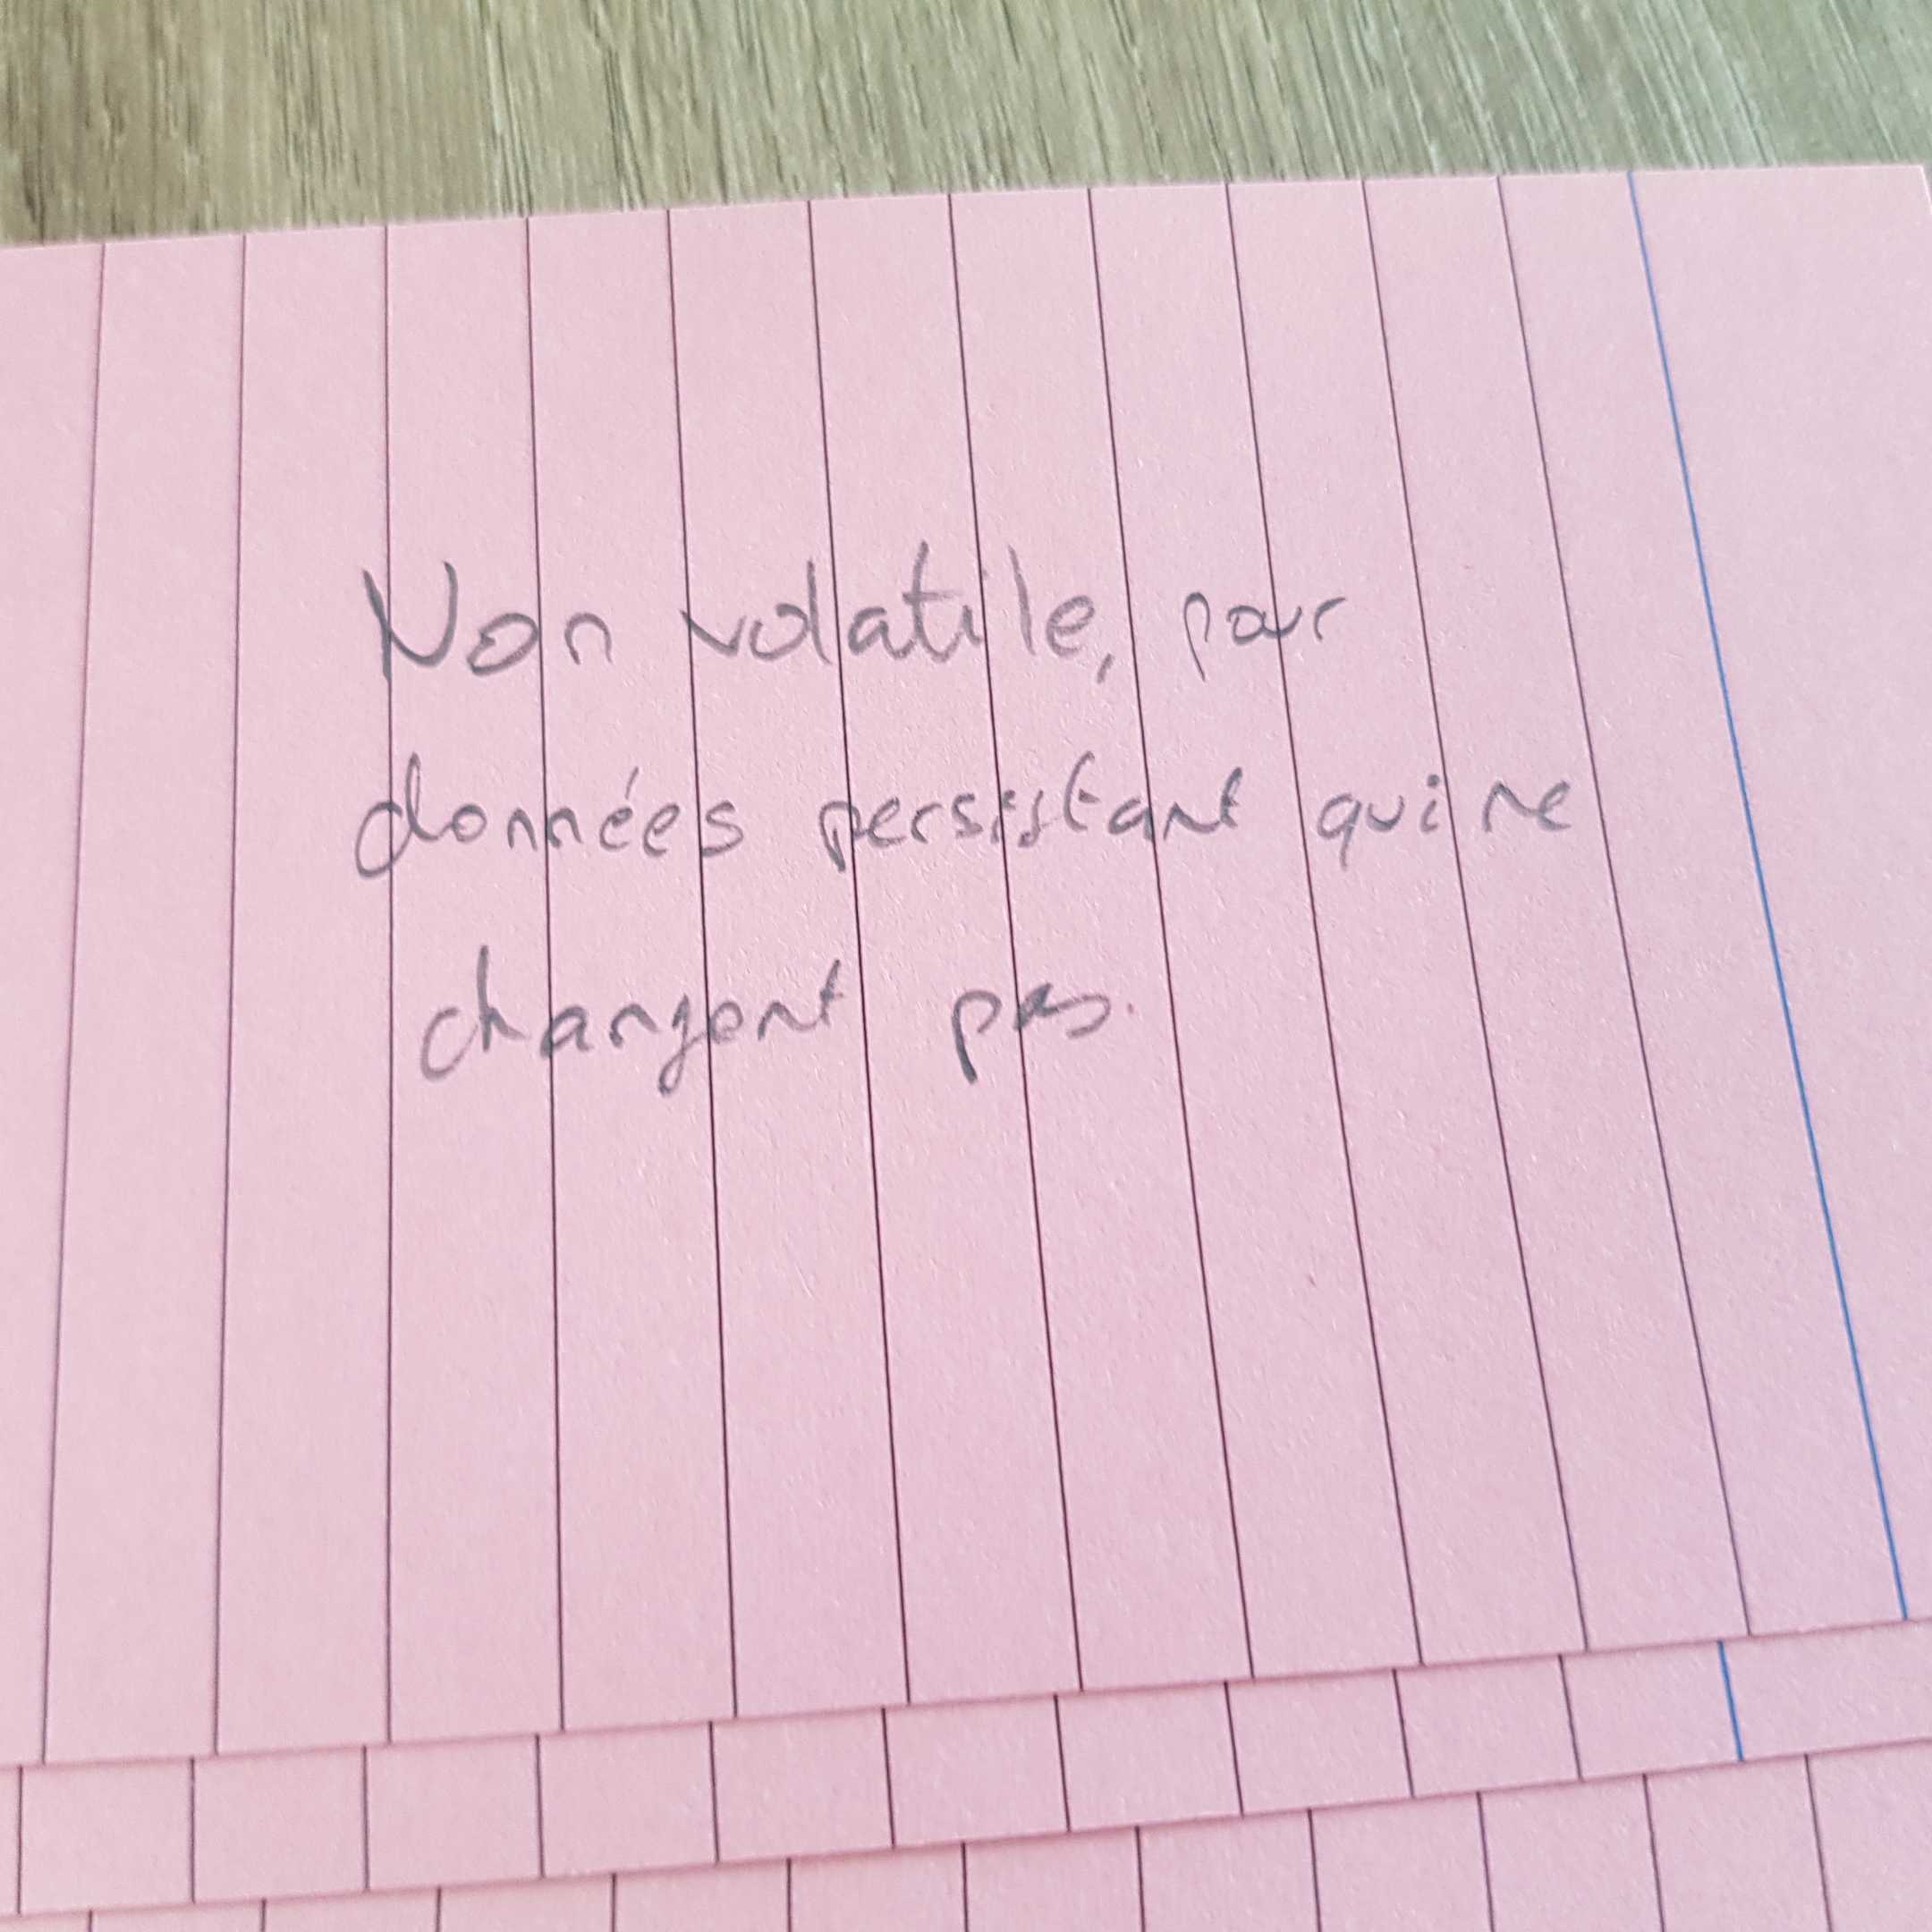 Non volatile, pour
données persistant qui ne
changent pas.